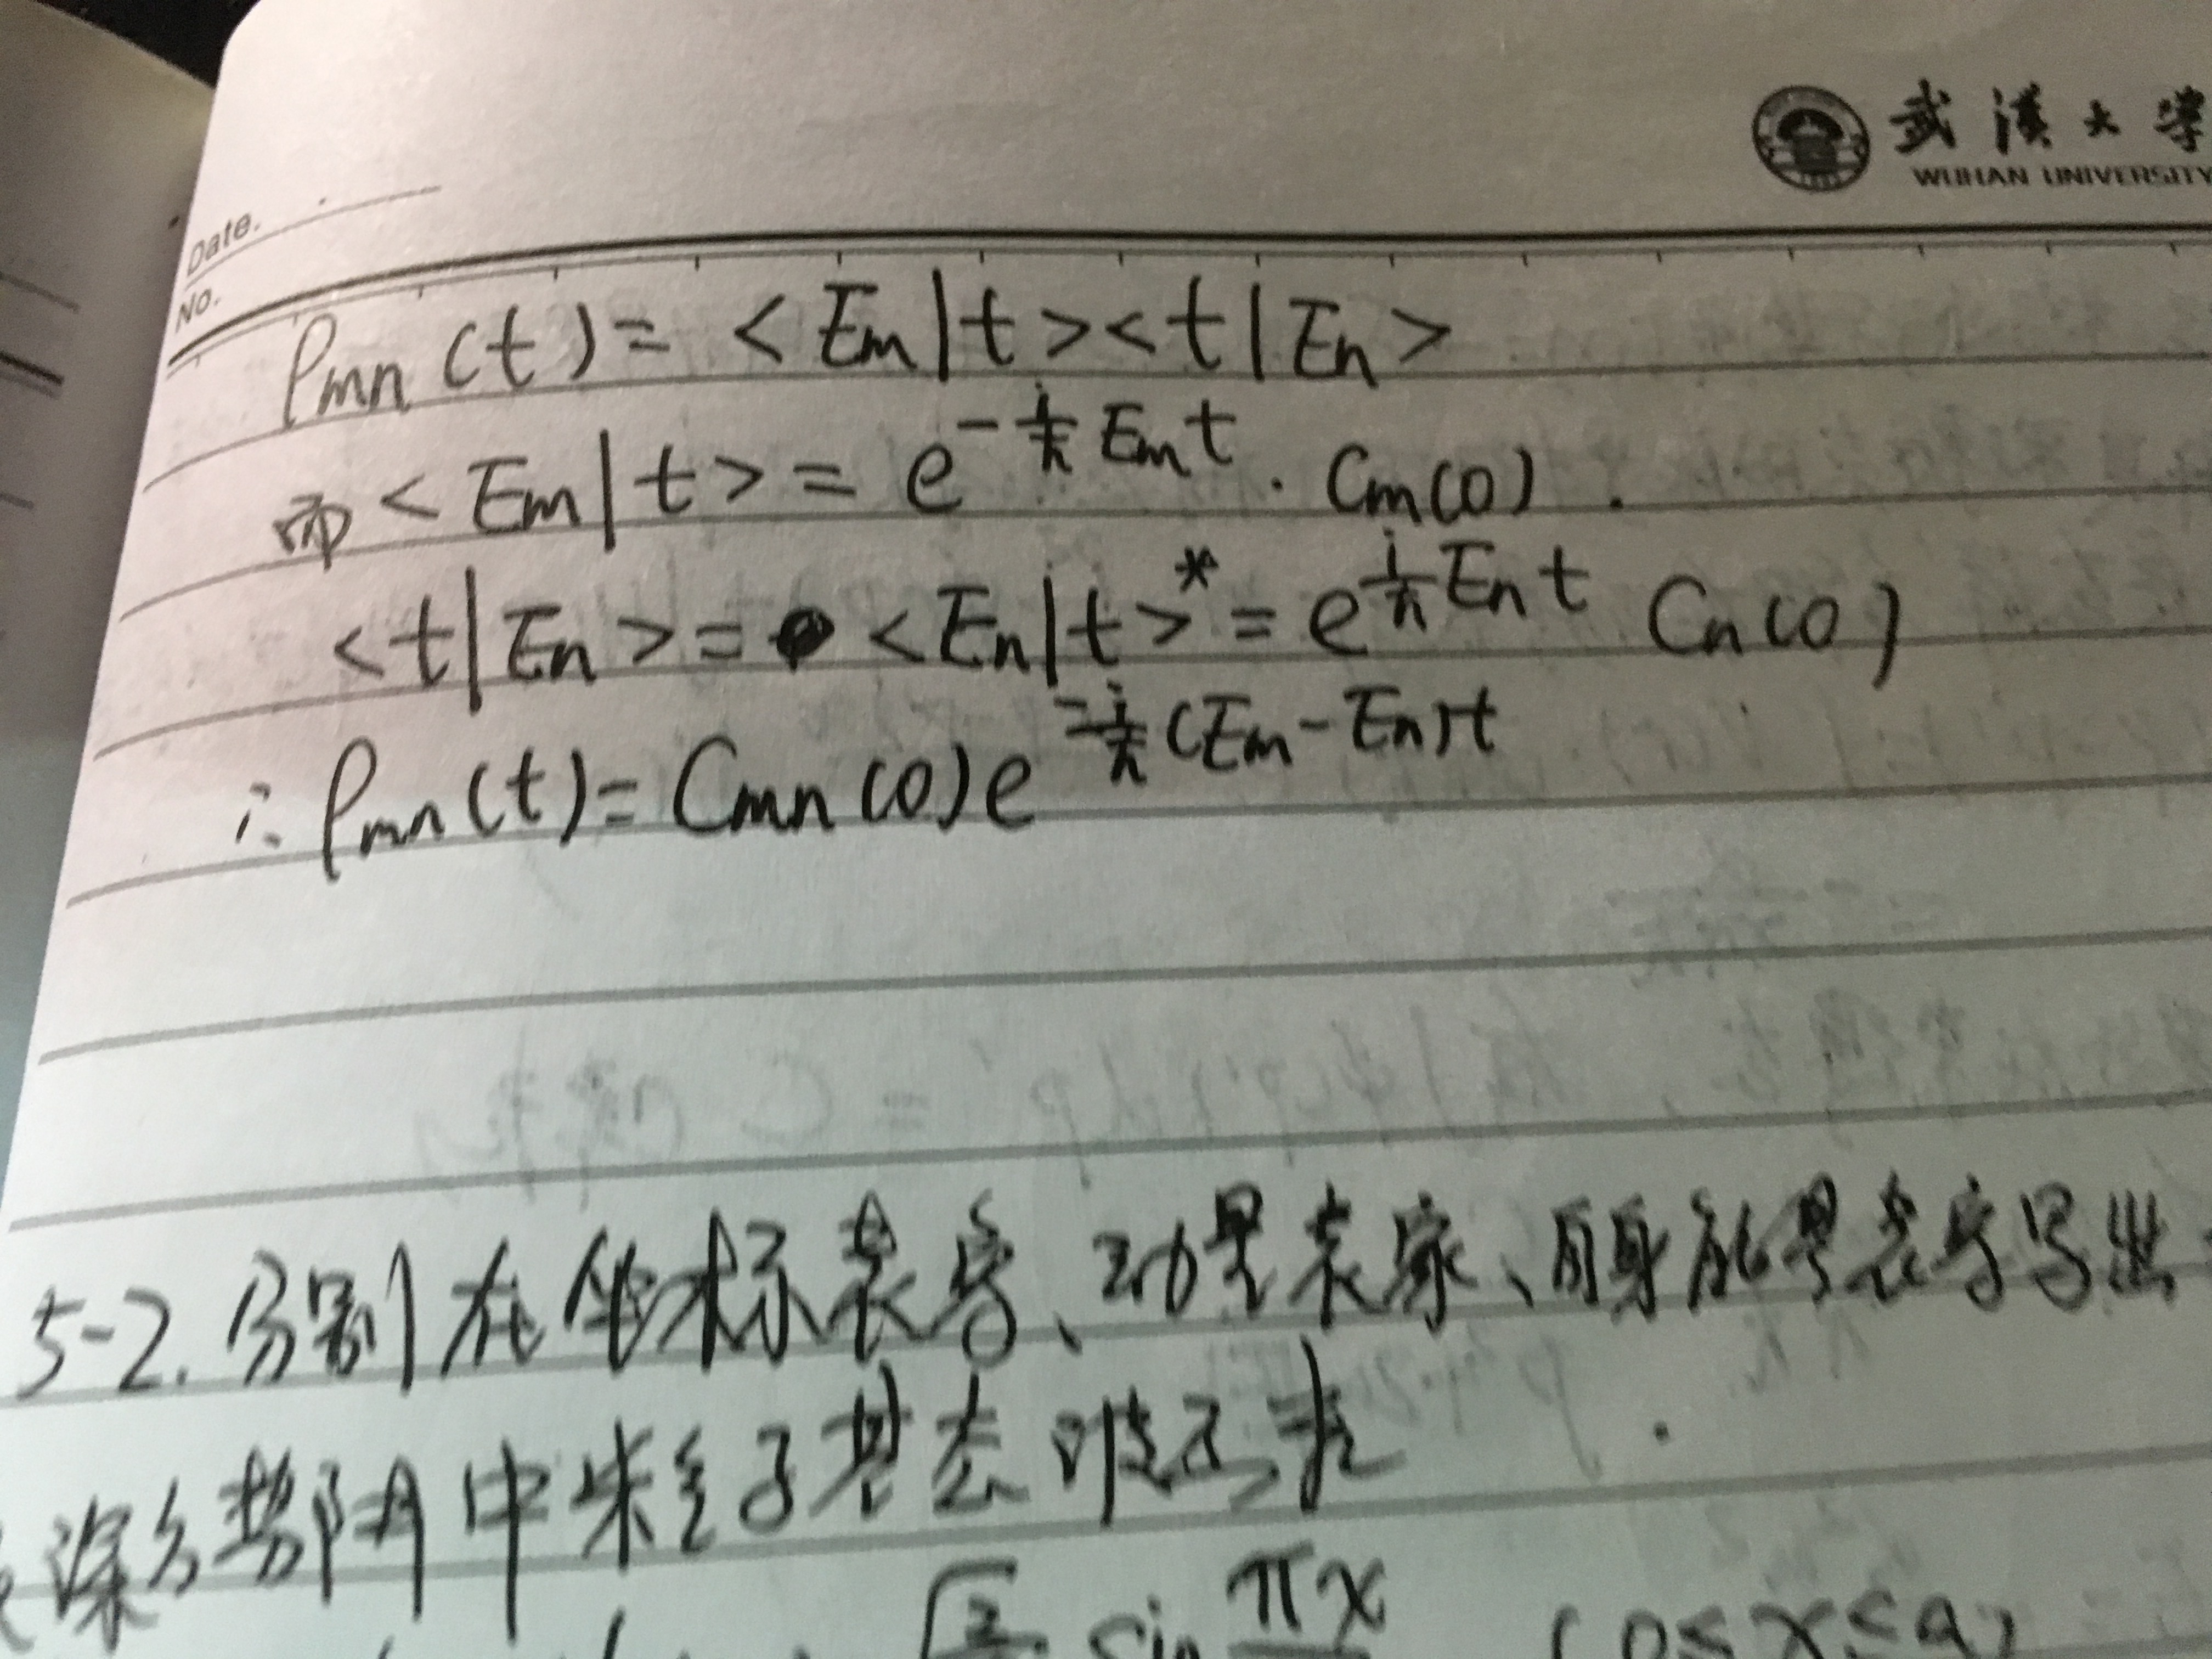 武漢大学
WUHAN UNIVERSITY
Date.
No.
ρmn(t) = <Em|t><t|En>
而 <Em|t> = e^{-\frac{i}{ℏ}Emt} · Cm(0).
<t|En> = <En|t>* = e^{\frac{i}{ℏ}Ent} Cn(0)
∴ ρmn(t) = Cmn(0)e^{-\frac{i}{ℏ}(Em-En)t}
5-2. 分别在坐标表象、动量表象、能量表象写出
深方势阱中粒子基态波函
\sqrt{2} sin πx (0≤x≤a)